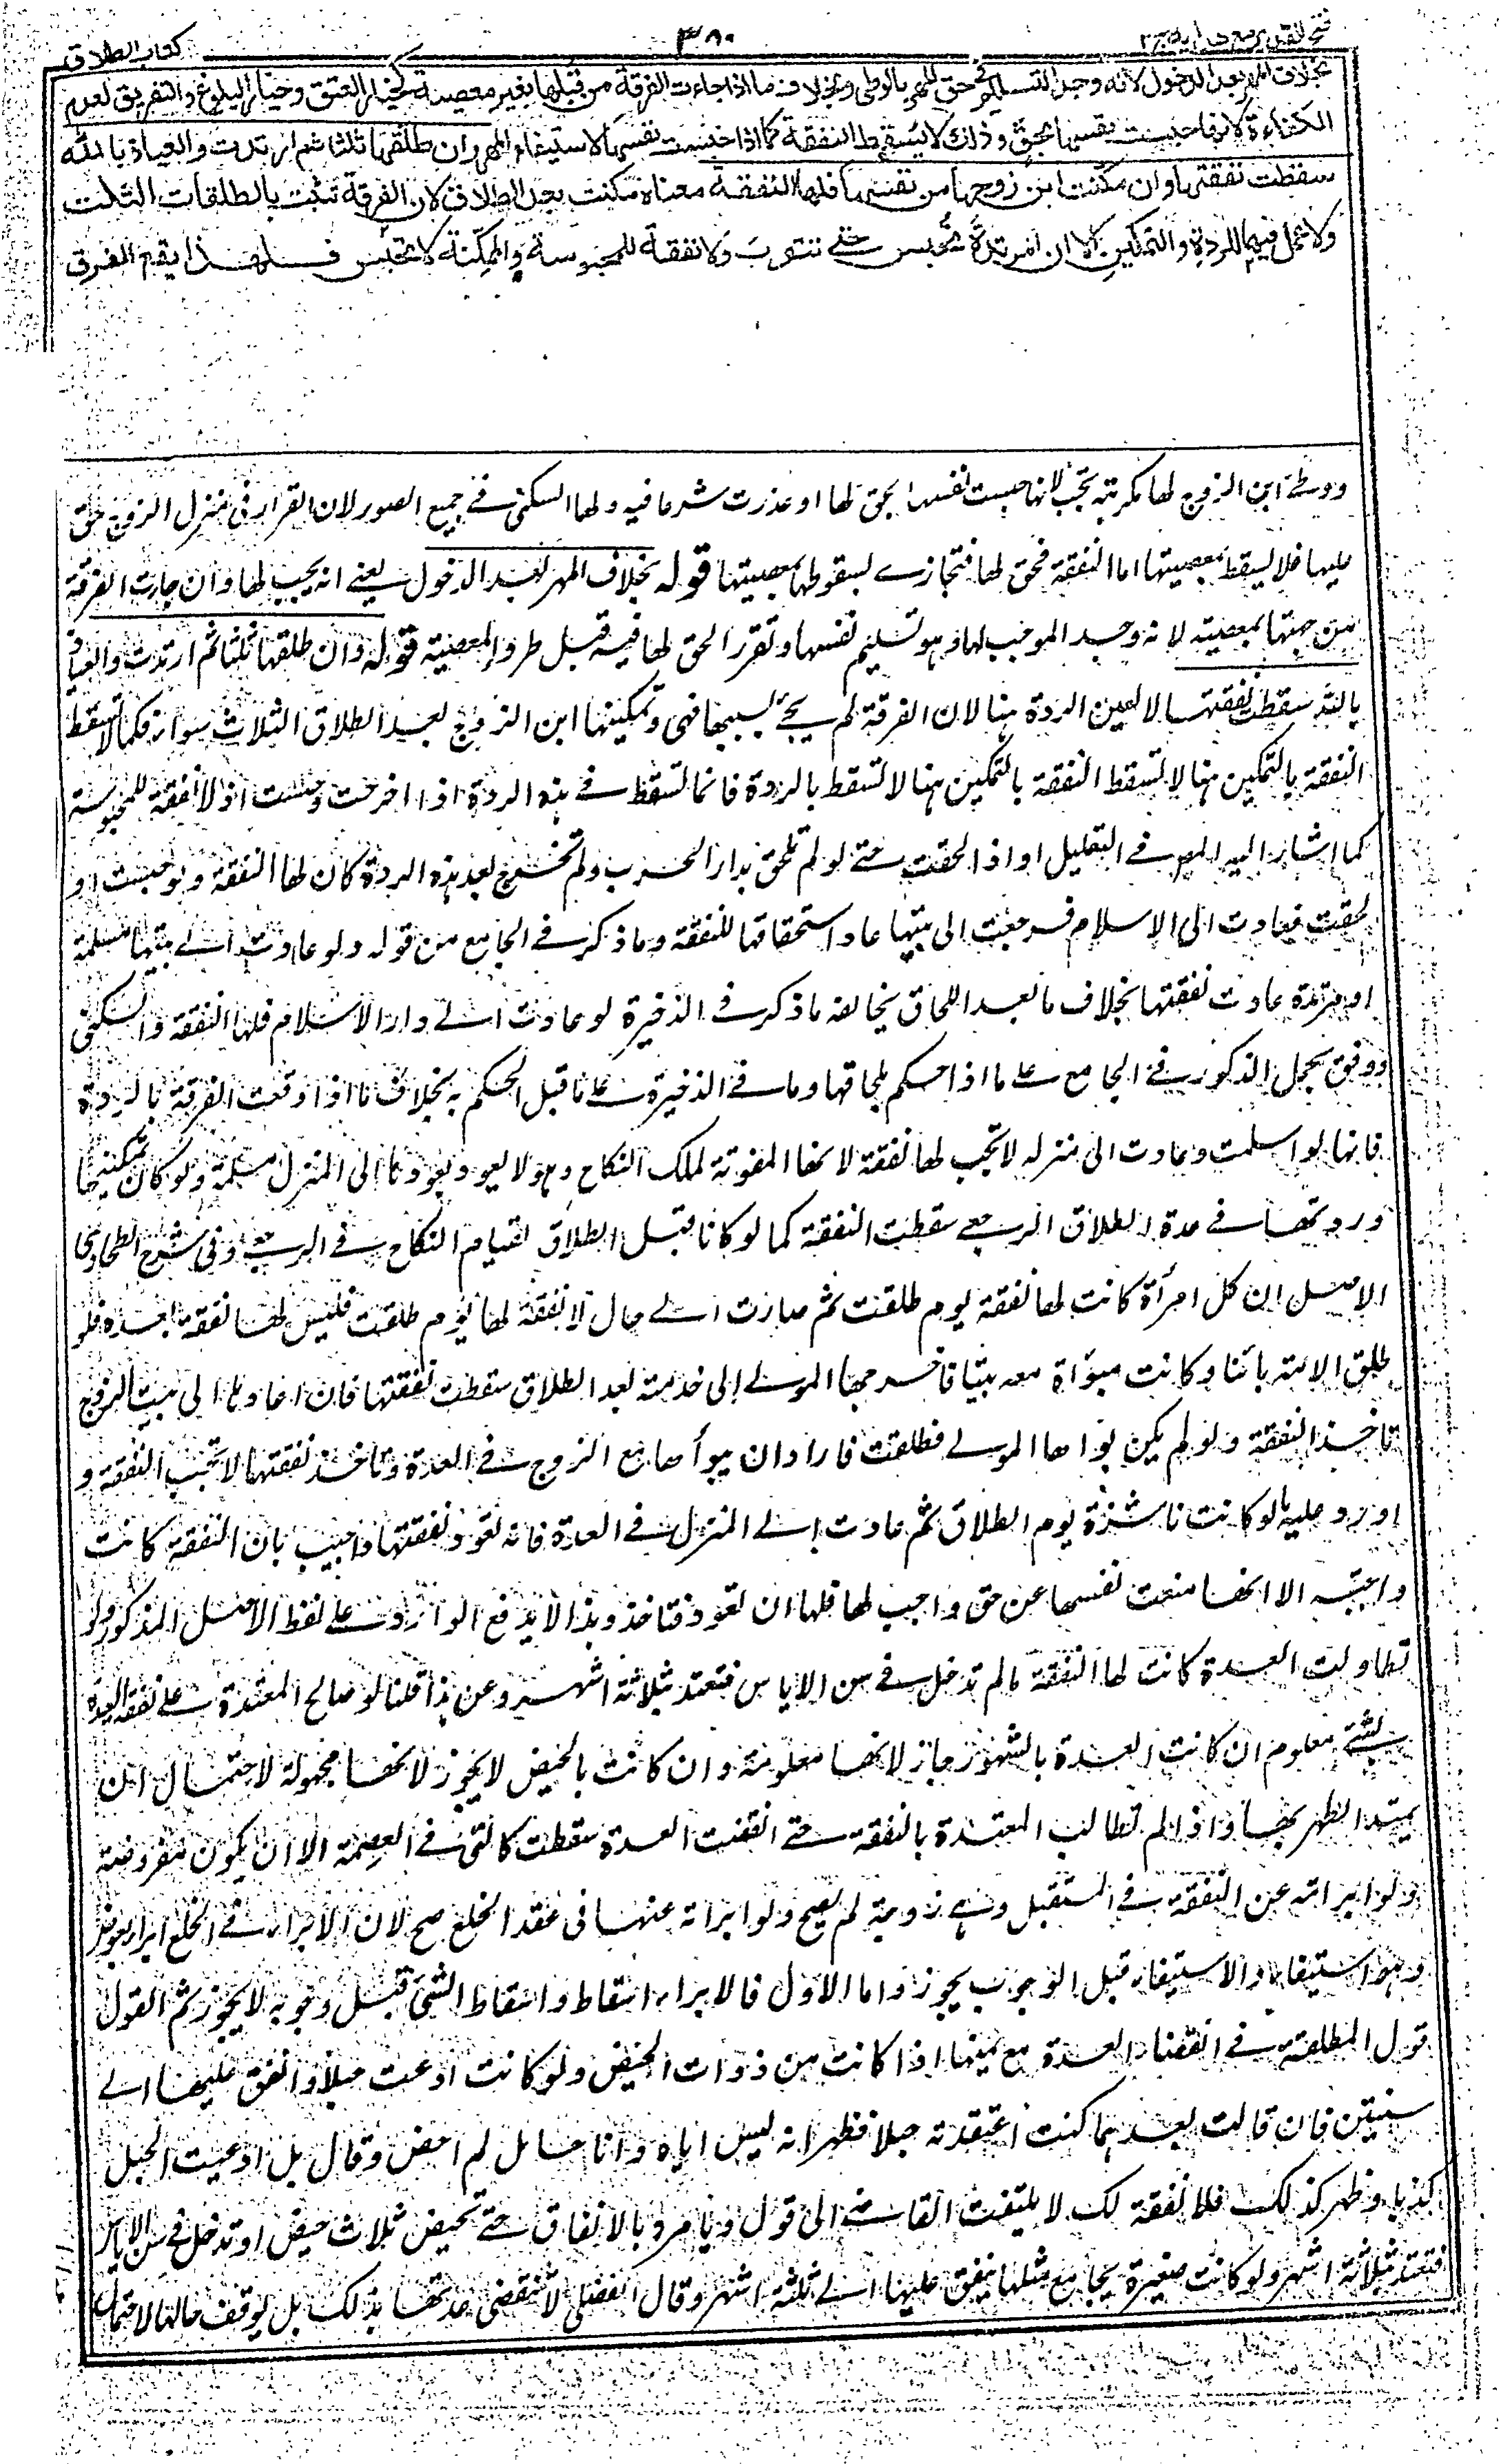 فتح القدير مع هداية ج ٢
٣٨٠
كتاب الطلاق
بخلاف المهر بعد الدخول لانه وجد التسليم في حق المهر بالوطي وبخلاف ما اذا جاءت الفرقة من قبلها بغير معصية كخيار العتق وخيار البلوغ والتفريق لعدم
الكفاءة لانها حبست نفسها بحق وذلك لا يسقط النفقة كما اذا حبست نفسها لاستيفاء المهر وان طلقها ثلثا ثم ارتدت والعياذ بالله
سقطت نفقتها وان مكنت ابن زوجها من نفسها فلها النفقة معناه مكنت بعد الطلاق لان الفرقة تثبت بالطلقات الثلث
ولا عمل فيها للردة والتمكين الا ان المرتدة تحبس حتى تتوب ولا نفقة للمحبوسة والممكنة لا تحبس فلهذا يقع الفرق
ووطئ ابن الزوج لها مكرهة تجب لانها حبست نفسها بحق لها او عذرت شرعا فيه ولها السكنى في جميع الصور لان القرار في منزل الزوج حق
عليها فلا يسقط بمعصيتها اما النفقة فحق لها فتجازى بسقوطها بمعصيتها قوله بخلاف المهر بعد الدخول يعني انه يجب لها وان جاءت الفرقة
من جهتها بمعصية لانه وجد الموجب لها وهو تسليم نفسها وتقرر الحق لها فيه قبل طرو المعصية قوله وان طلقها ثلثا ثم ارتدت والعياذ
بالله سقطت نفقتها لا لعين الردة هنا لان الفرقة لم يجئ بسببها فهي وتمكينها ابن الزوج بعد الطلاق الثلاث سواء فكما لا تسقط
النفقة بالتمكين هنا لا تسقط النفقة بالتمكين هنا لا تسقط بالردة فانما تسقط في هذه الردة اذا اخرجت وحبست اذ لا نفقة للمحبوسة
كما اشار اليه المص في التعليل او اذا لحقت حتى لو لم تلحق بدار الحرب ولم تخرج بعد هذه الردة كان لها النفقة ولو حبست او
لحقت فعادت الى الاسلام فرجعت الى بيتها عاد استحقاقها للنفقة وما ذكر في الجامع من قوله ولو عادت الى بيتها مسلمة
او مرتدة عادت نفقتها بخلاف ما بعد اللحاق يخالفه ما ذكر في الذخيرة لو عادت الى دار الاسلام فلها النفقة والسكنى
ووفق بحمل المذكور في الجامع على ما اذا حكم بلحاقها وما في الذخيرة على ما قبل الحكم به بخلاف ما اذا وقعت الفرقة بالردة
فانها لو اسلمت وعادت الى منزله لا تجب لها نفقة لانها المفوتة لملك النكاح وهو لا يعود بعودها الى المنزل مسلمة ولو كان تمكينها
وردتها في عدة الطلاق الرجعي سقطت النفقة كما لو كانا قبل الطلاق لقيام النكاح في الرجعي وفي شرح الطحاوي
الاصل ان كل امرأة كانت لها نفقة يوم طلقت ثم صارت الى حال لا نفقة لها يوم طلقت فليس لها نفقة ابدا فلو
طلق الامة بائنا وكانت مبوأة معه بيتا فاخرجها المولى الى خدمته بعد الطلاق سقطت نفقتها فان اعادها الى بيت الزوج
تاخذ النفقة ولو لم يكن بوأها المولى فطلقت فاراد ان يبوأها مع الزوج في العدة وتاخذ نفقتها لا تجب النفقة و
اورد عليه لو كانت ناشزة يوم الطلاق ثم عادت الى المنزل في العدة فانه تعود نفقتها واجيب بان النفقة كانت
واجبة الا انها منعت نفسها عن حق واجب لها فلها ان تعود فتاخذ وهذا لا يدفع الوارد على لفظ الاصل المذكور ولو
تطاولت العدة كانت لها النفقة ما لم تدخل في سن الاياس فتعتد ثلاثة اشهر وعن هذا قلنا لو صالح المعتدة على نفقة العدة
بشئ معلوم ان كانت العدة بالشهور جاز لانها معلومة وان كانت بالحيض لا يجوز لانها مجهولة لاحتمال ان
يمتد الطهر بها واذا لم تطالب المعتدة بالنفقة حتى انقضت العدة سقطت كالتي في العصمة الا ان يكون مفروضة
ولو ابرأته عن النفقة في المستقبل وهي زوجة لم يصح ولو ابرأته عنها في عقد الخلع صح لان الابراء في الخلع ابراء بعوض
وهو استيفاء والاستيفاء قبل الوجوب يجوز واما الاول فالابراء اسقاط واسقاط الشئ قبل وجوبه لا يجوز ثم القول
قول المطلقة في انقضاء العدة مع يمينها اذا كانت من ذوات الحيض ولو كانت ادعت حبلا وانفق عليها الى
سنتين فان قالت بعدهما كنت اعتقدته حبلا فظهر انه ليس اياه وانا حائل لم احض وقال بل ادعيت الحبل
كذبا وظهر كذلك فلا نفقة لك لا يلتفت القاضي الى قوله ويامره بالانفاق حتى تحيض ثلاث حيض او تدخل في سن الاياس
فتعتد ثلاثة اشهر ولو كانت صغيرة يجامع مثلها ينفق عليها الى ثلثة اشهر وقال الفضلي لا تنقضي عدتها بذلك بل يوقف حالها لاحتمال